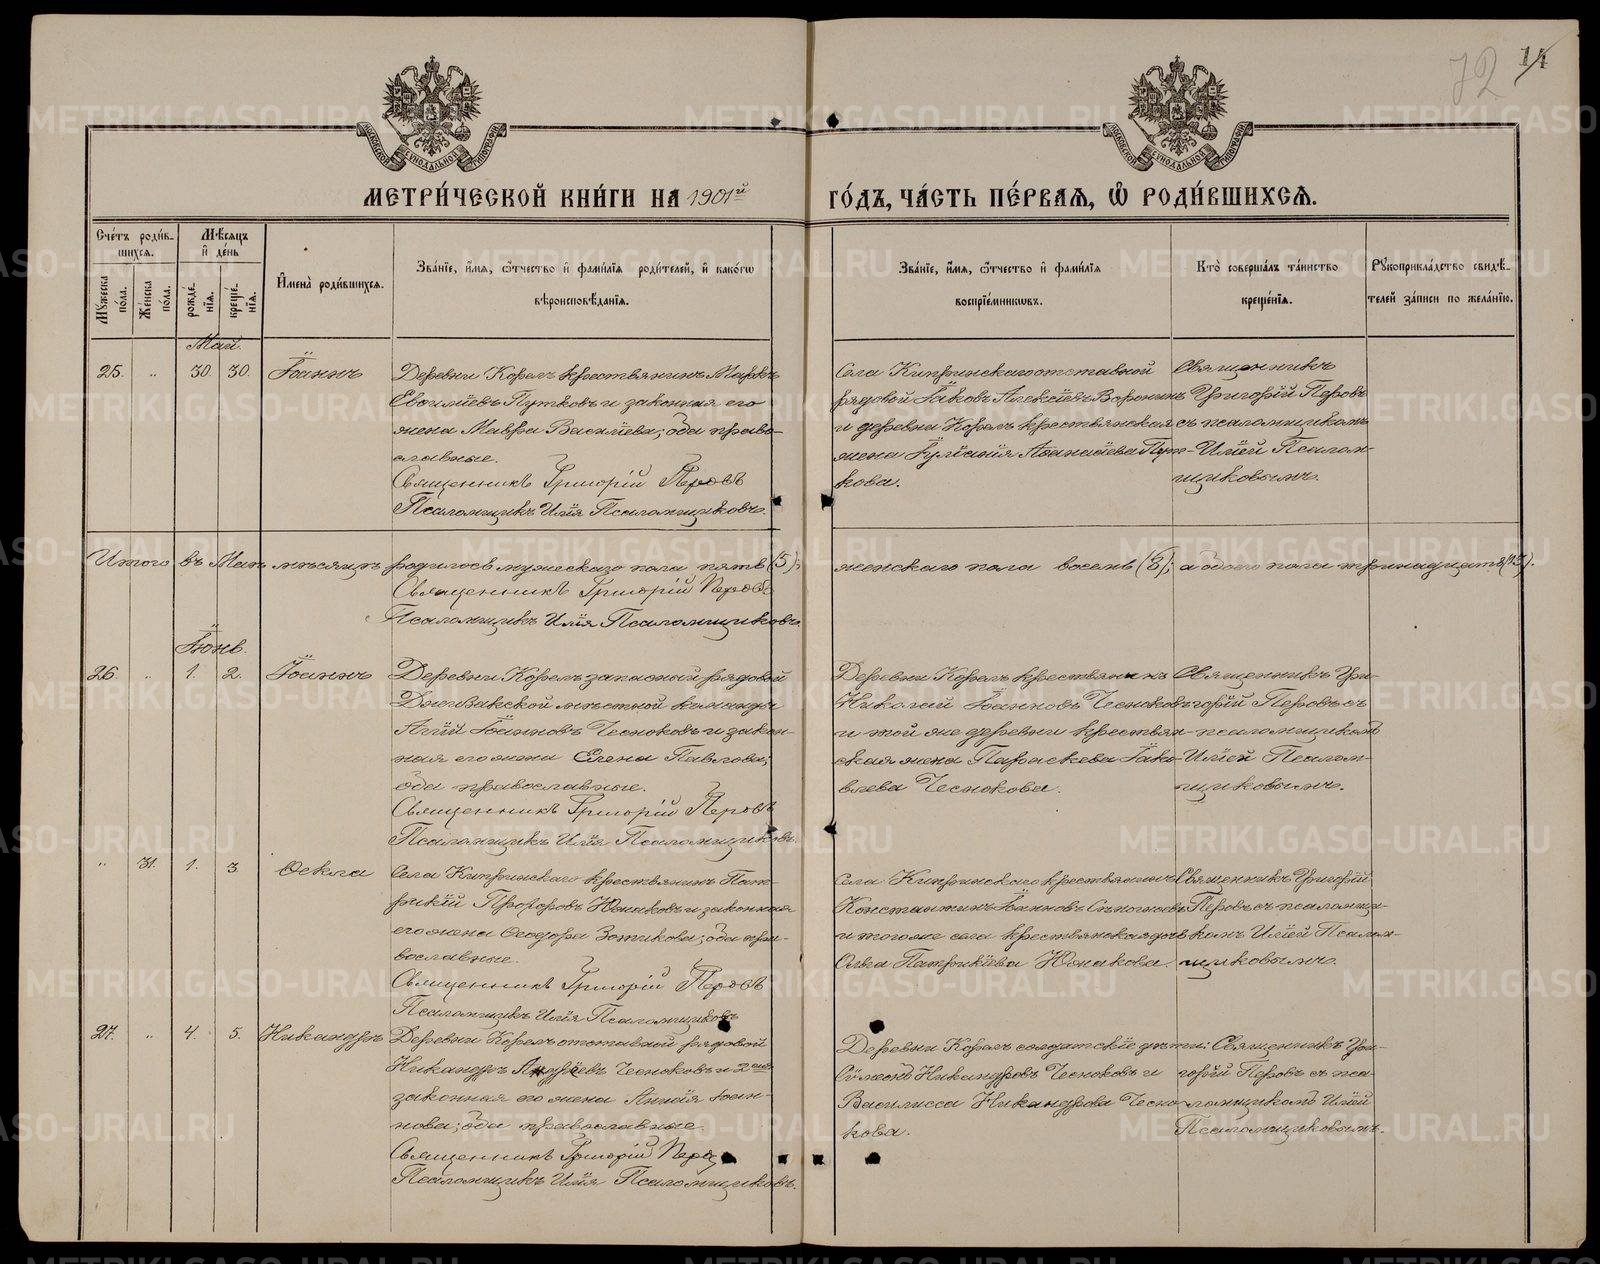 72 14
МЕТРИ́ЧЕСКОЙ КНИ́ГИ НА 1901й
ГО́ДЪ, ЧА́СТЬ ПЕ́РВАѦ, Ѡ҆ РОДИ́ВШИХСѦ.
Сче́тъ роди́в-
шихсѧ.
Мꙋ́жеска по́ла.
Же́нска по́ла.
Мѣ́сѧцъ
и҆ де́нь
рожде́-
нїѧ.
креще́-
нїѧ.
И҆мена̀ роди́вшихсѧ.
Зва́нїе, и҆́мѧ, ѻ҆́тчество и҆ фами́лїѧ роди́телей, и҆ како́гѡ
вѣроисповѣ́данїѧ.
Зва́нїе, и҆́мѧ, ѻ҆́тчество и҆ фами́лїѧ
воспрїе́мникѡвъ.
Кто̀ соверша́лъ та́инство
креще́нїѧ.
Рꙋкоприкла́дство свидѣ́-
телей за́писи по жела́нїю.
Май.
25. " 30 30. Іоаннъ
Деревни Корелъ крестьянинъ Маркъ
Евсилѣевъ Путковъ и законная его
жена Мавра Василіева; оба право-
славные.
Священникъ Григорій Перовъ
Псаломщикъ Илія Псаломщиковъ.
Села Кипринскаго отставной
рядовой Іаковъ Алексіевъ Воронинъ
и деревни Корелъ крестьянская
жена Іуліанія Аѳанасіева Пут-
кова.
Священникъ
Григорій Перовъ
съ псаломщикомъ
Иліей Псалом-
щиковымъ.
Итого въ Маѣ мѣсяцѣ родилось мужескаго пола пять (5); женскаго пола восемь (8); а обоего пола тринадцать (13).
Священникъ Григорій Перовъ
Псаломщикъ Илія Псаломщиковъ.
Іюнь.
26. " 1. 2. Іоаннъ
Деревни Корелъ запасный рядовой
мѣстной команды
Іоанновъ Чесноковъ и закон-
ная его жена Елена Павлова;
оба православные.
Священникъ Григорій Перовъ
Псаломщикъ Илія Псаломщиковъ.
Деревни Корелъ крестьянинъ
Николай Іоанновъ Чесноковъ
и той же деревни крестьян-
ская жена Параскева Іако-
влева Чеснокова.
Священникъ Гри-
горій Перовъ съ
псаломщикомъ
Иліей Псалом-
щиковымъ.
" 31. 1. 3. Ѳекла
Села Кипринскаго крестьянинъ Пат-
рикій Прохоровъ Юшаковъ и законная
его жена Ѳеодора Зотикова; оба пра-
вославные.
Священникъ Григорій Перовъ
Псаломщикъ Илія Псаломщиковъ
Села Кипринскаго крестьянинъ
Константинъ Іоанновъ
и того же села крестьянская дѣв.
Ольга Патрикіева Юшакова.
Священникъ Григорій
Перовъ съ псаломщи-
комъ Иліей Псалом-
щиковымъ.
27. " 4. 5. Никандръ
Деревни Корелъ отставной рядовой
Никандръ Андреевъ Чесноковъ и 2ая
законная его жена Іоан-
нова; оба православные.
Священникъ Григорій Перовъ
Псаломщикъ Илія Псаломщиковъ.
Деревни Корелъ солдатскіе дѣти:
Сѵмеонъ Никандровъ Чесноковъ и
Василисса Никандрова Чесно-
кова.
Священникъ Гри-
горій Перовъ съ пса-
ломщикомъ Иліей
Псаломщиковымъ.
METRIKI.GASO-URAL.RU